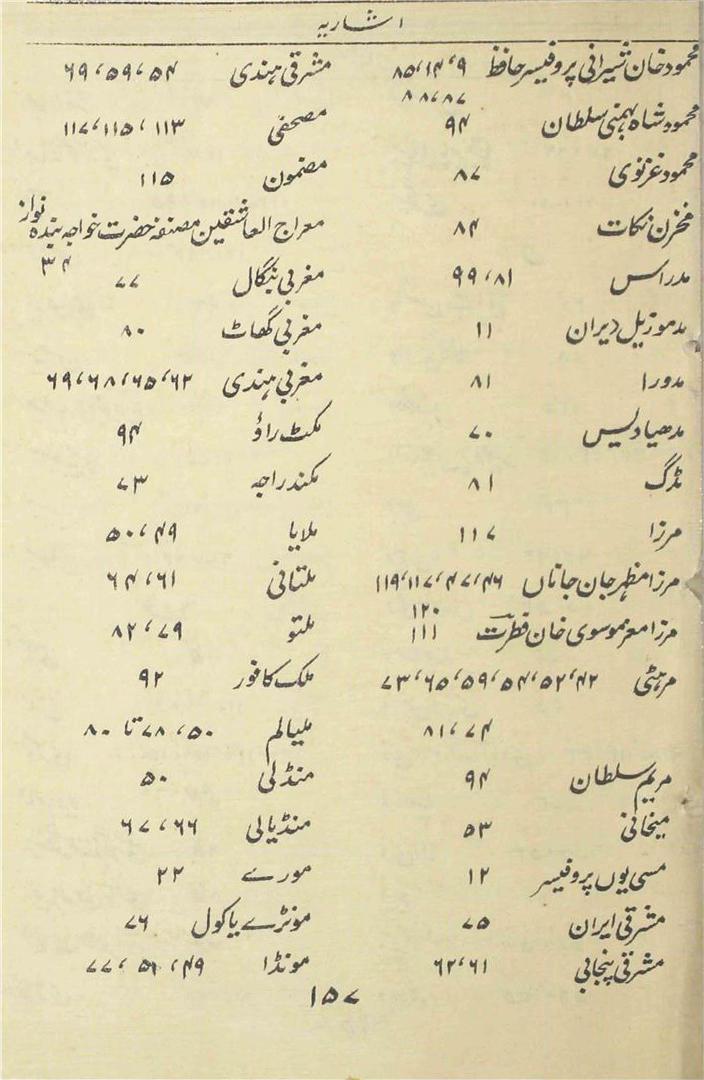 اشاریہ
محمود خان شیرانی پروفیسر حافظ ۹، ۱۴، ۸۵
۸۷، ۸۸
محمود شاہ بہمنی سلطان ۹۴
محمود غزنوی ۸۷
مخزن نکات ۸۴
مدراس ۸۱، ۹۹
مدموزیل دیران ۱۱
مدورا ۸۱
مدھیا دیس ۷۰
مڈگ ۸۱
مرزا ۱۱۷
مرزا مظہر جان جاناں ۴۶، ۴۷، ۱۱۷، ۱۱۹
۱۲۰
مرزا معز موسوی خان فطرت ۱۱۱
مرہٹی ۴۲، ۵۲، ۵۴، ۵۹، ۶۵، ۷۳
۷۴، ۸۱
مریم سلطان ۹۴
میخانی ۵۳
مسی یوں پروفیسر ۱۲
مشرقی ایران ۷۵
مشرقی پنجابی ۶۱، ۶۲
مشرقی ہندی ۵۴، ۵۹، ۶۹
مصحفی ۱۱۳، ۱۱۵، ۱۱۷
مضمون ۱۱۵
معراج العاشقین مصنفہ حضرت خواجہ بندہ نواز
۳۴
مغربی بنگال ۷۷
مغربی گھاٹ ۸۰
مغربی ہندی ۶۲، ۶۵، ۶۸، ۶۹
مکٹ راؤ ۹۴
مکند راجہ ۷۳
ملایا ۴۹، ۵۰
ملتانی ۶۱، ۶۴
ملتو ۷۹، ۸۲
ملک کافور ۹۲
ملیالم ۵۰، ۷۸ تا ۸۰
منڈلی ۵۰
منڈیالی ۶۶، ۶۷
مورے ۲۲
مونڑے یا کول ۷۶
مونڈا ۴۹، ۵۱، ۷۷
۱۵۷